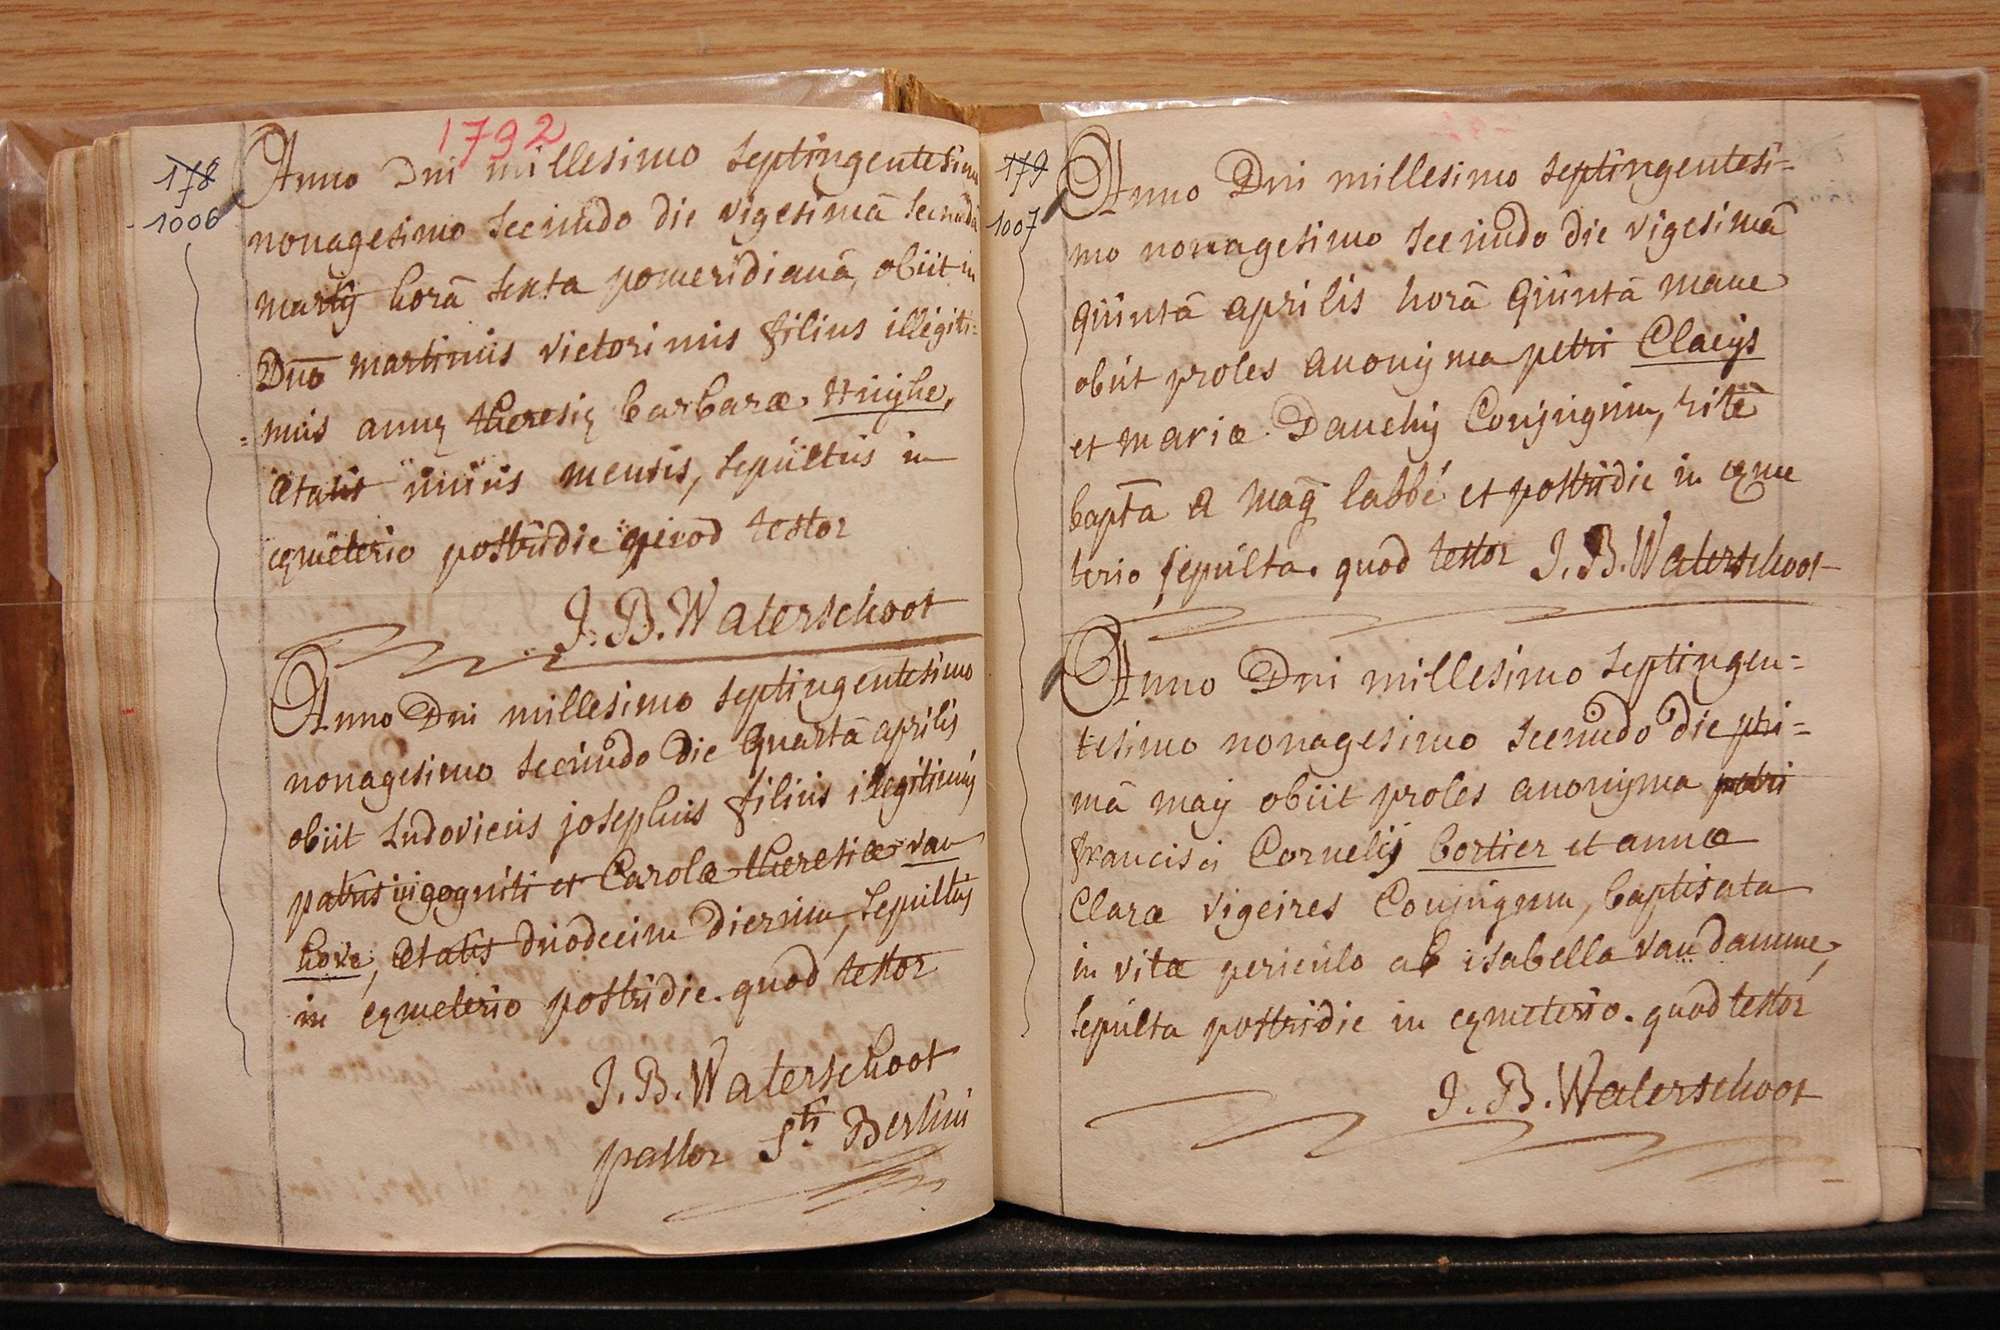 1792
178
1006
Anno Dni millesimo septingentesimo
nonagesimo secundo die vigesimā secundā
martij horā sexta pomeridianā, obiit in
Dno martinus victorinus filius illegiti=
=mus annę theresię barbaræ Huijghe,
ætatis unius mensis, sepultus in
cęmeterio postridie quod testor
J. B. Waterschoot
Anno Dni millesimo septingentesimo
nonagesimo secundo die quartā aprilis
obiit Ludovicus josephus filius illegitimus
patris ingogniti et Carolæ theresiæ van
hove, ætatis duodecim dierum, sepultus
in cęmeterio postridie. quod testor
J. B. Waterschoot
pastor Sti Bertini
179
1007
Anno Dni millesimo septingentesi=
mo nonagesimo secundo die vigesimā
quintā aprilis horā quintā mane
obiit proles anonijma petri Claeijs
et mariæ Dauchij Conjugum, rite
bapta a mag labbé et postridie in cęme
terio sepulta. quod testor J. B. Waterschoot
Anno Dni millesimo septingen=
tesimo nonagesimo secundo die pri=
mā maij obiit proles anonijma
francisci Cornelij bortier et annæ
Claræ vigeires Conjugum, baptisata
in vitæ periculo ab isabella van damme,
sepulta postridie in cęmeterio. quod testor
J. B. Waterschoot